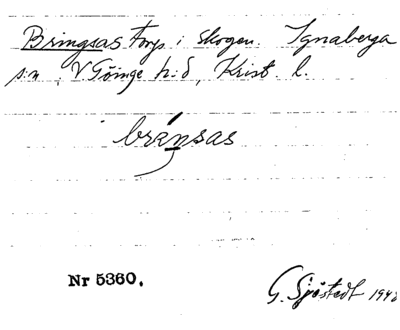 Bringsas Torp i skogen. Ignaberga
s:n, V Göinge h:d, Krist. l.
bräŋsas
Nr 5360.
G. Sjöstedt 1942